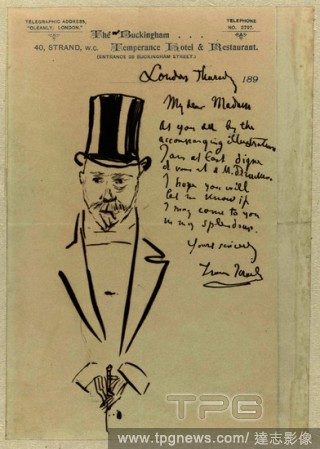 TELEGRAPHIC ADDRESS,
"CLEANLY, LONDON."
TELEPHONE
NO. 2757.
The Buckingham . . .
40, STRAND, W.C. Temperance Hotel & Restaurant.
(ENTRANCE 55 BUCKINGHAM STREET.)
London Thursday 189
My dear Madam
As you see by the
accompanying illustration
I am at last digne
de vous et
I hope you will
let me know if
I may come to you
in my splendour.
Yours sincerely
TPG
www.tpgnews.com / 達志影像